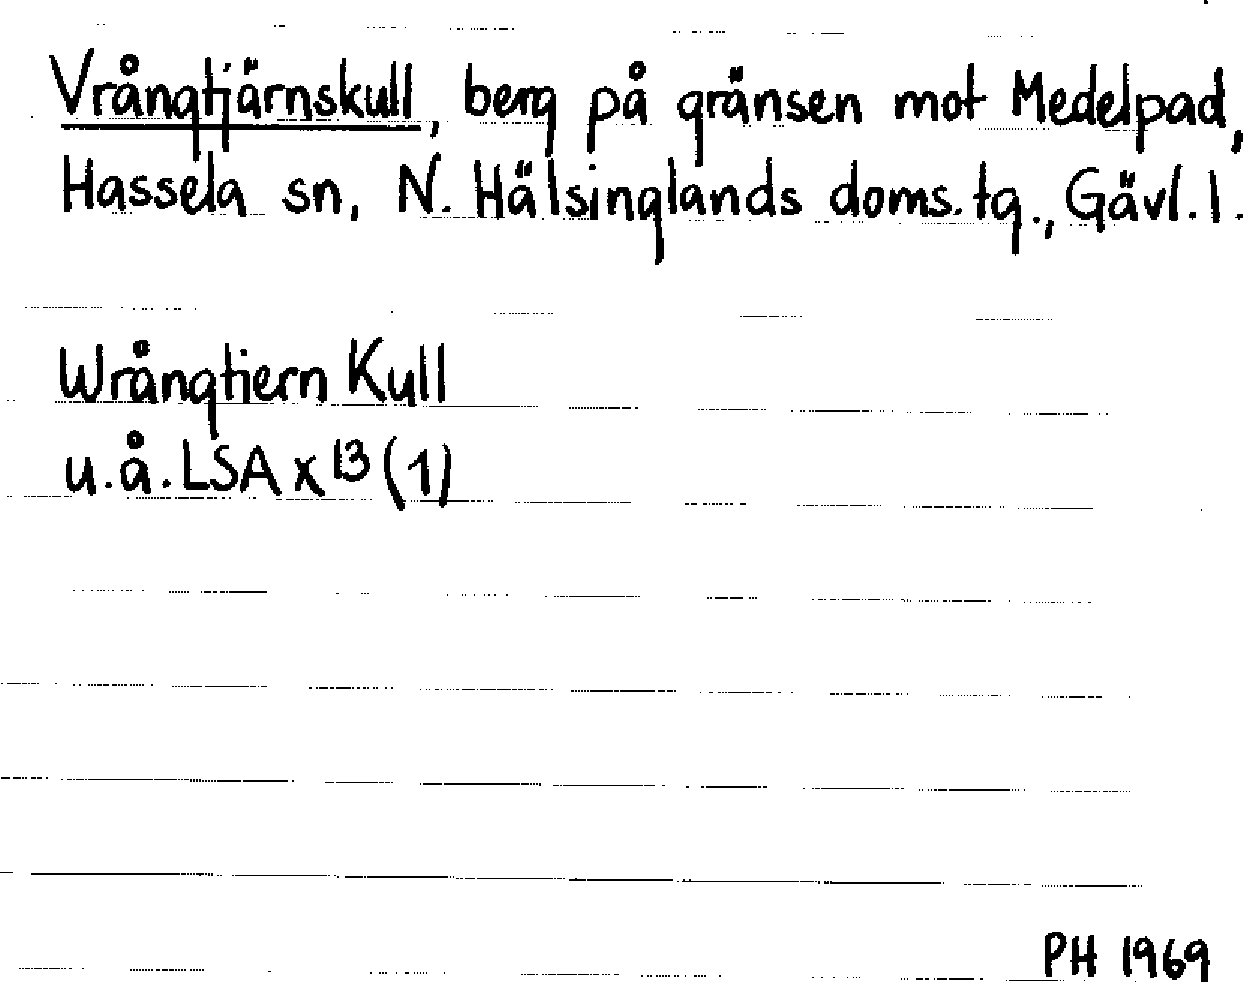 Vrångtjärnskull, berg på gränsen mot Medelpad,
Hassela sn, N. Hälsinglands doms.tg., Gävl.l.
Wrångtiern Kull
u.å. LSA X 13 (1)
PH 1969